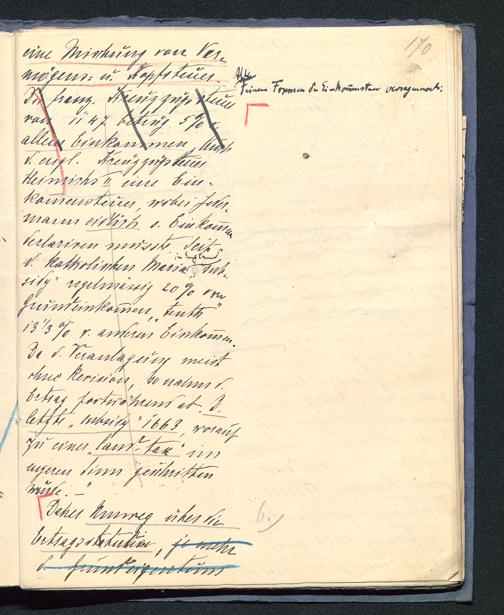 170
eine Mischung von Ver-
mögens- u. Kopfsteuer.
D. franz. Kreuzzugssteuer
von 1147 betrug 5%
allen Einkommen, auch
d. engl. Kreuzzugssteuer
Heinrichs II eine Ein-
kommensteuer, wobei jeder-
mann eidlich s. Einkomm.
deklariren musste. Seit
d. katholischen Maria in England "sub-
sidy" regelmässig 20% vom
Grundeinkommen, "tenth"
13 1/3 % v. anderem Einkommen.
Da d. Veranlagung meist
ohne Revision, so nahm d.
Betrag fortwährend ab. D.
letzte "subsidy" 1663, worauf
zu einer "land-tax" im
engeren Sinn geschritten
wurde. -"
Daher Umweg über die
Ertragssteuern, je mehr
d. Grundeigentum
Formen der Einkommensteuer